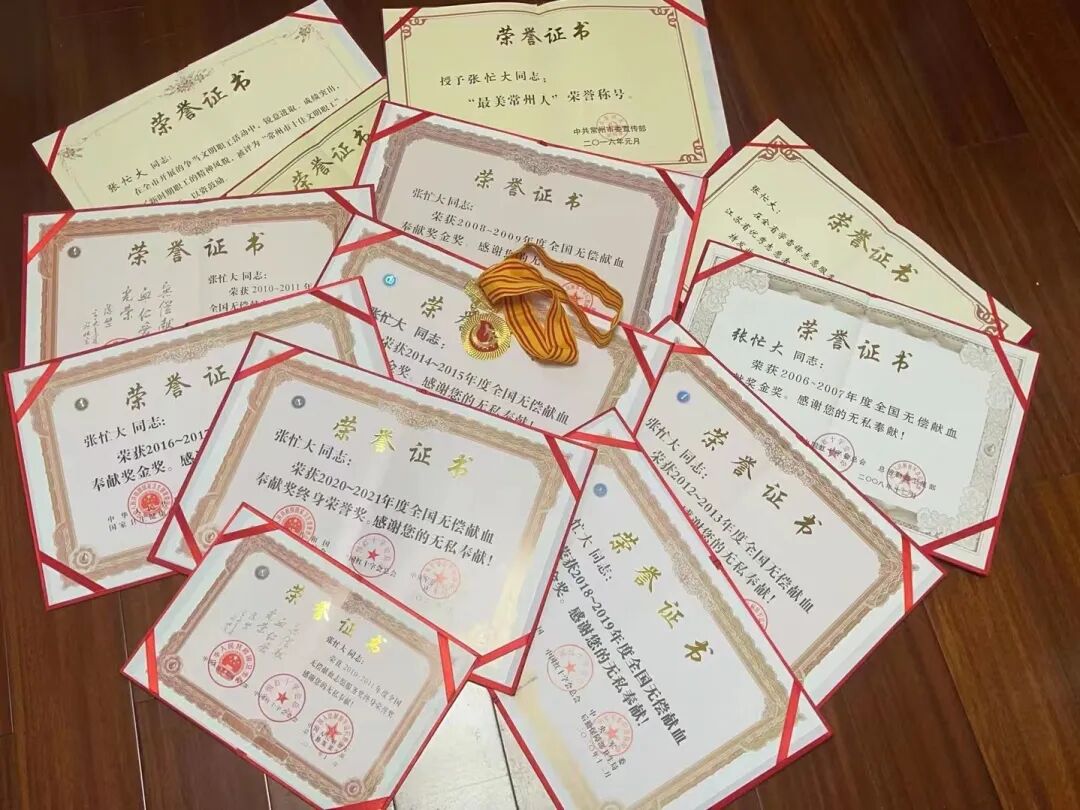 荣誉证书
张忙大 同志：
在全市开展的争当文明职工活动中，锐意进取，成绩突出，
被评为“常州市十佳文明职工”
荣誉证书
授予张忙大同志：
“最美常州人”荣誉称号。
中共常州市委宣传部
二〇一六年元月
荣誉证书
荣誉证书
张忙大同志：
荣获2008~2009年度全国无偿献血
奉献奖金奖。感谢您的无
荣誉证书
张忙大：
荣誉证书
张忙大同志：
荣获2010~2011年
全国无偿献
荣
张忙大 同志：
荣获2014~2015年度全国无偿献血
奉献奖金奖。感谢您的无私奉献！
荣誉证书
张忙大 同志：
荣获2006~2007年度全国无偿献血
奉献奖金奖。感谢您的无私奉献！
荣誉证
张忙大 同志：
荣获2016~2017
奉献奖金奖。感
荣誉证书
张忙大同志：
荣获2020~2021年度全国无偿献血
奉献奖终身荣誉奖。感谢您的无私奉献！
荣誉证书
张忙大同志：
荣获2012~2013年度全国无偿献血
感谢您的无私奉献！
荣誉证书
张忙大同志：
荣获2010~2011年度全国
无偿献血志愿服务奖终身荣誉奖
感谢您的无私奉献！
荣誉证书
张忙大同志：
荣获2018~2019年度全国无偿献血
奖金奖。感谢您的无私奉献！
中国红十字会总会